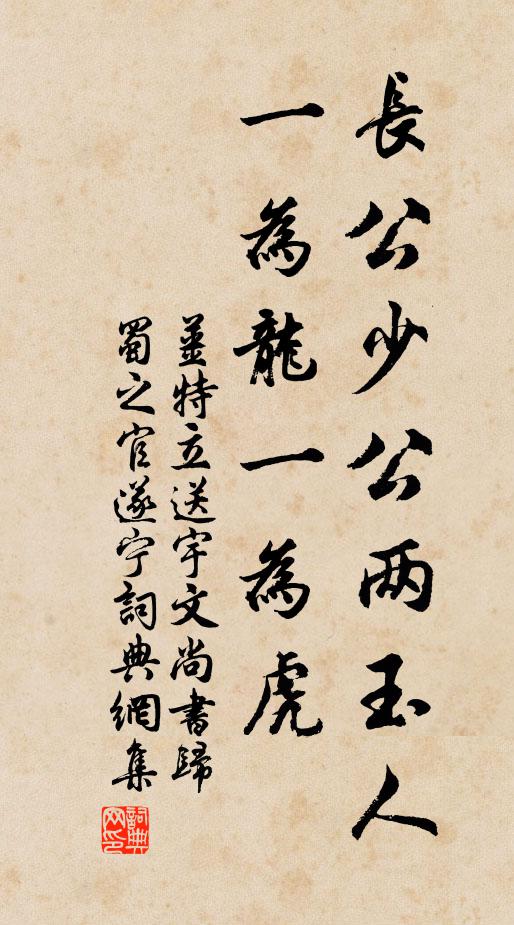 長公少公两玉人
一為龍一為虎
姜特立送宇文尚書歸
蜀之官遂宁詞典網集
詞典
网印